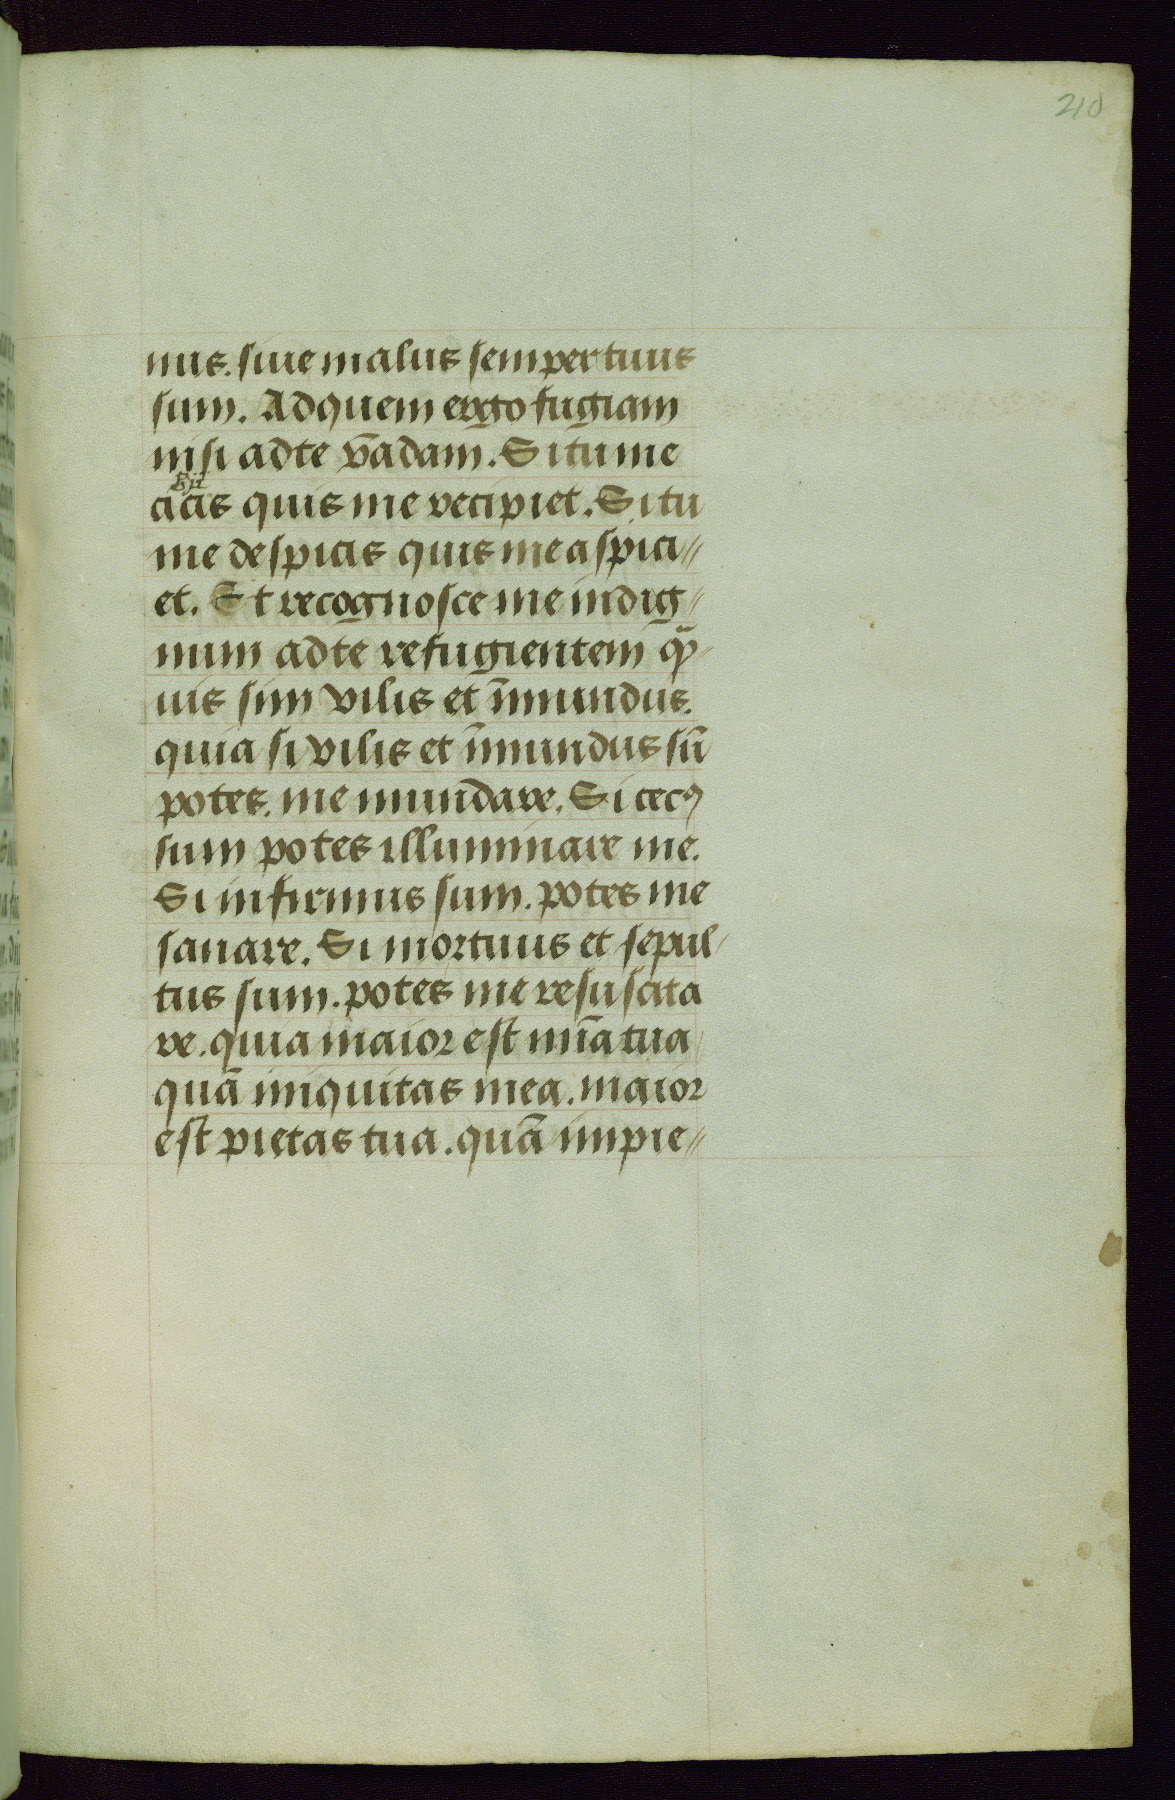 210
nus. siue malus semper tuus
sum. Ad quem ergo fugiam
nisi ad te vadam. Si tu me
eicis quis me recipiet. Si tu
me despicis quis me aspici//
et. Et recognosce me indig/
num ad te refugientem qͣ̃/
uis sim vilis et īmundus.
quia si vilis et īmundus sū
potes. me mundare. Si cecꝰ
sum potes illuminare me.
Si infirmus sum. potes me
sanare. Si mortuus et sepul/
tus sum. potes me resuscita
re. quia maior est mīa tua
quā iniquitas mea. maior
est pietas tua. quā impie//